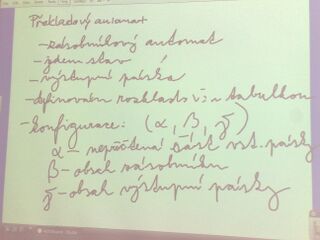 Překladový automat
- zásobníkový automat
- jeden stav
- výstupní páska
- definován rozkladovou tabulkou
- konfigurace: (α, β, γ)
α - nepřečtená část vst. pásky
β - obsah zásobníku
γ - obsah výstupní pásky